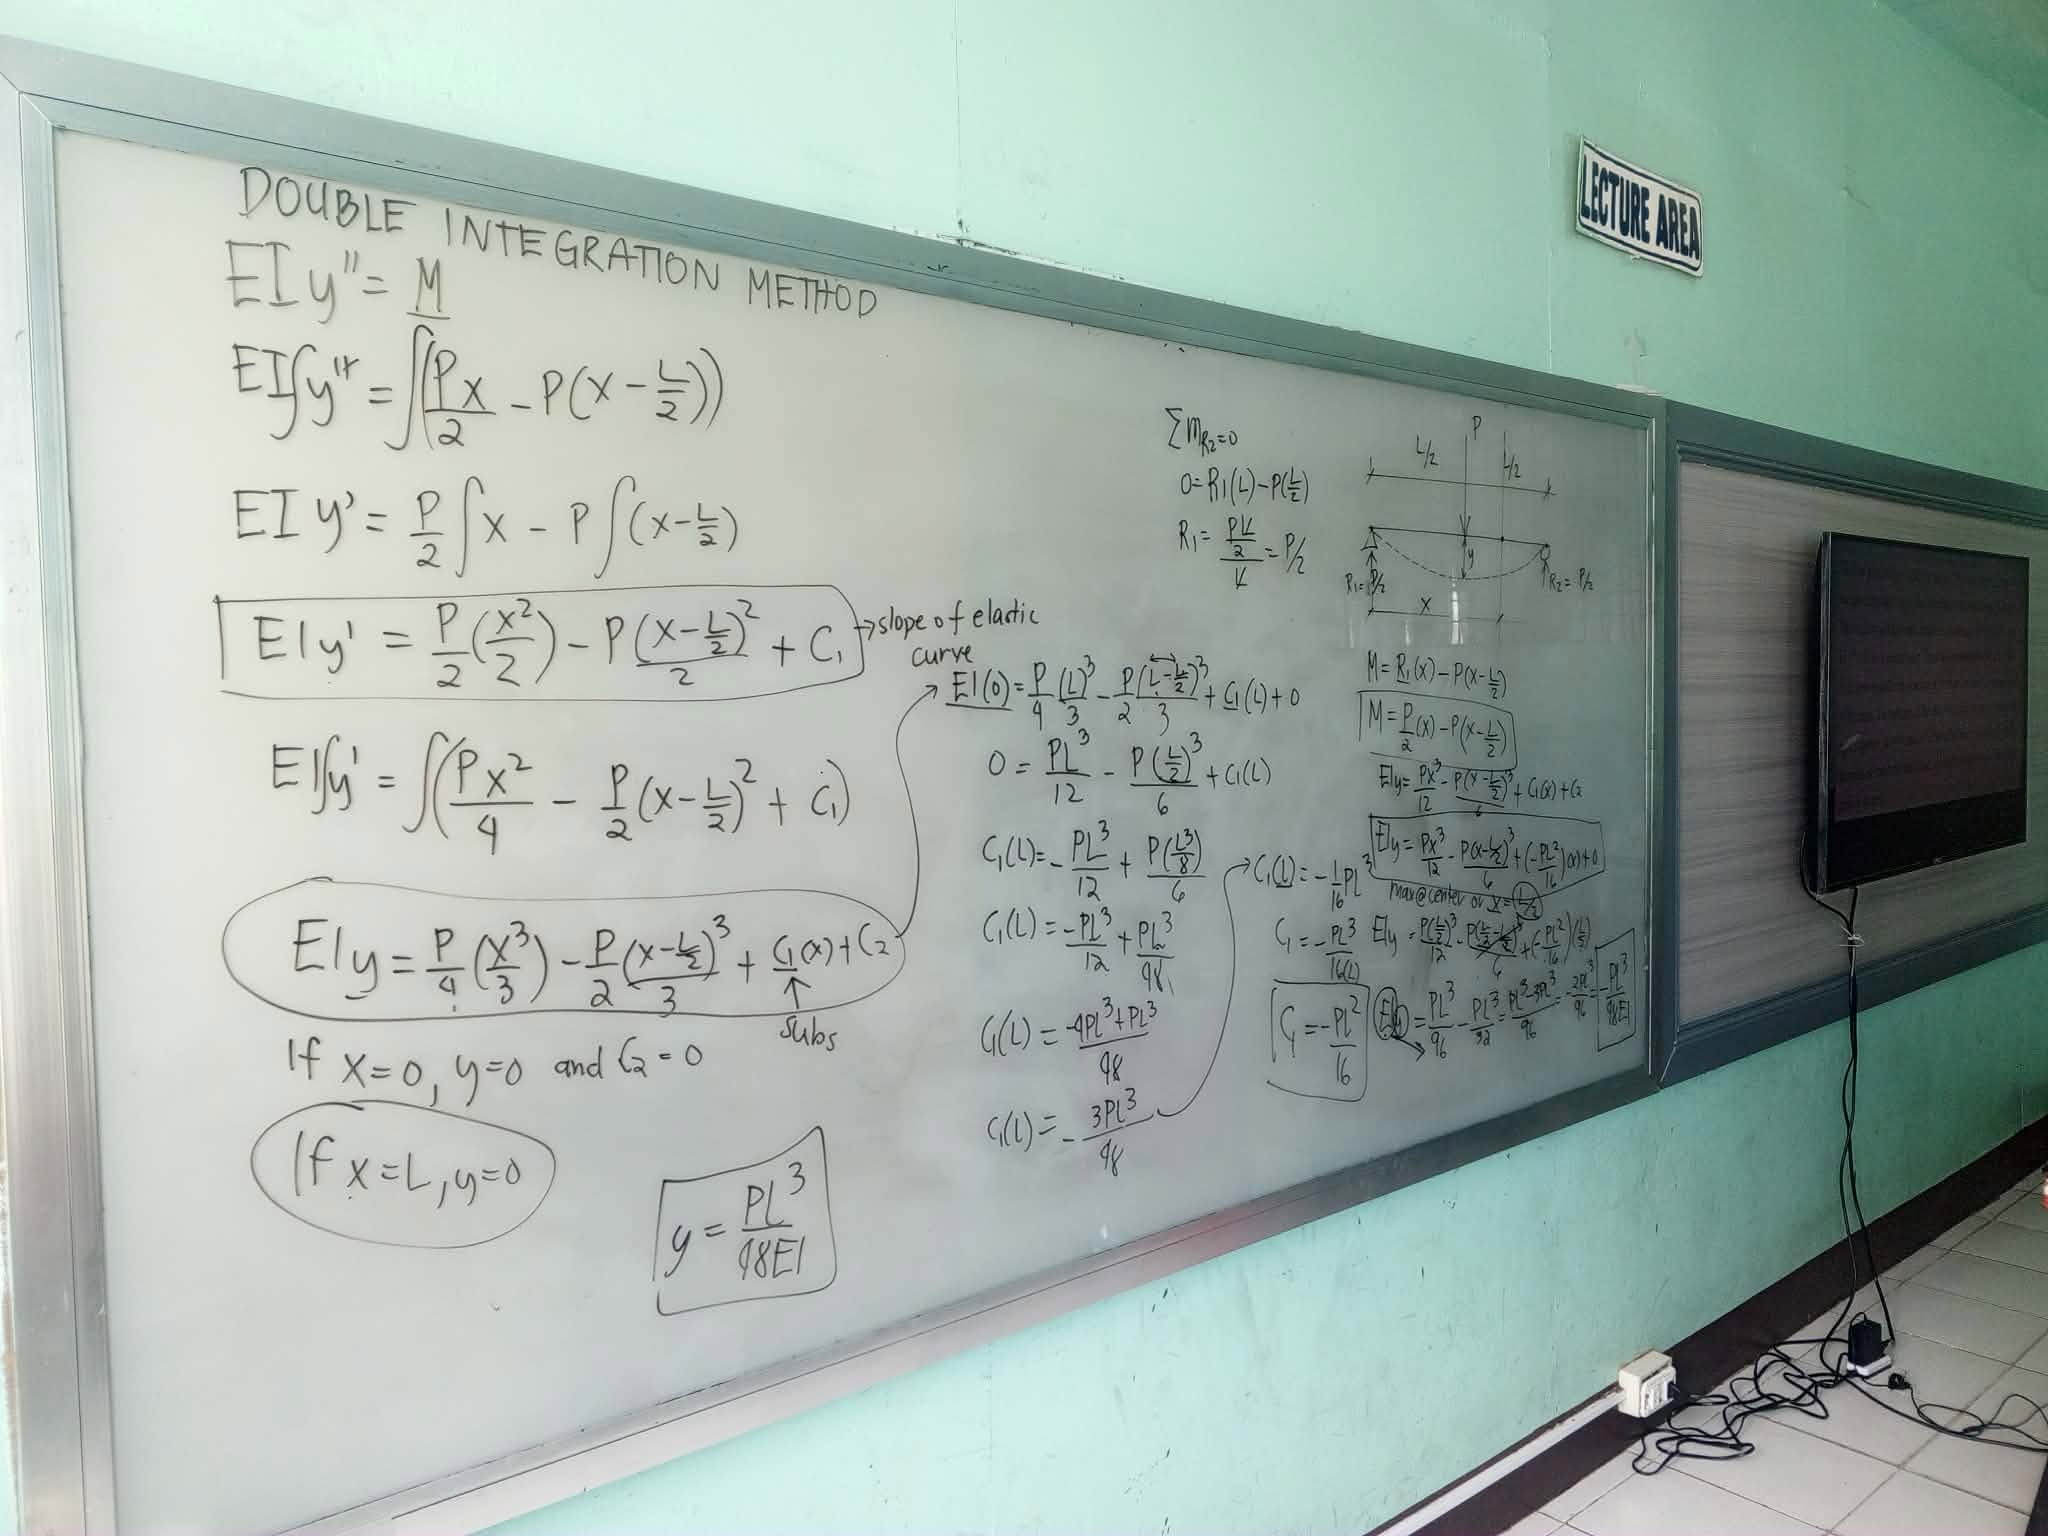 DOUBLE INTEGRATION METHOD
EI y'' = M
EI∫y'' = ∫(Px/2 - P(x - L/2))
EI y' = P/2 ∫x - P∫(x - L/2)
EIy' = P/2 (x²/2) - P(x - L/2)²/2 + C₁ → slope of elastic
curve
EI∫y' = ∫(Px²/4 - P/2 (x - L/2)² + C₁)
EIy = P/4 (x³/3) - P/2 (x - L/2)³/3 + C₁(x) + C₂
subs
If x=0, y=0 and C₂ = 0
If x=L, y=0
y = PL³/48EI
EI(0) = P/4 (L)³/3 - P/2 (L - L/2)³/3 + C₁(L) + 0
0 = PL³/12 - P(L/2)³/6 + C₁(L)
C₁(L) = -PL³/12 + P(L³/8)/6
C₁(L) = -PL³/12 + PL³/48
C₁(L) = -4PL³+PL³/48
C₁(L) = -3PL³/48
C₁(L) = -1/16 PL³
C₁ = -PL³/16(L)
C₁ = -PL²/16
ΣM_R2=0
0=R₁(L)-P(L/2)
R₁ = PL/2/L = P/2
P
L/2 L/2
y
R₁=P/2 R₂ = P/2
x
M=R₁(x)-P(x-L/2)
M=P/2(x)-P(x-L/2)
EIy=Px³/12-P(x-L/2)³/6+C₁(x)+C₂
EIy=Px³/12-P(x-L/2)³/6+(-PL²/16)(x)+0
max@center or x=L/2
EIy=P(L/2)³/12-P(L/2-L/2)³/6+(-PL²/16)(L/2)
EIy=PL³/96-PL³/32=PL³-3PL³/96=-2PL³/96=-PL³/48EI
LECTURE AREA